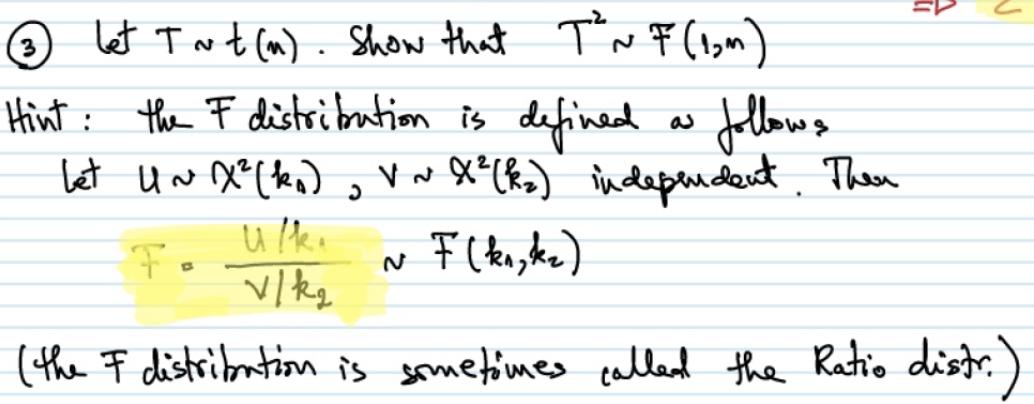 ③ Let T ~ t(n). Show that T² ~ F(1,n)
Hint: the F distribution is defined as follows
Let U ~ χ²(k₁), V ~ χ²(k₂) independent. Then
F = (U/k₁)/(V/k₂) ~ F(k₁,k₂)
(the F distribution is sometimes called the Ratio distr.)